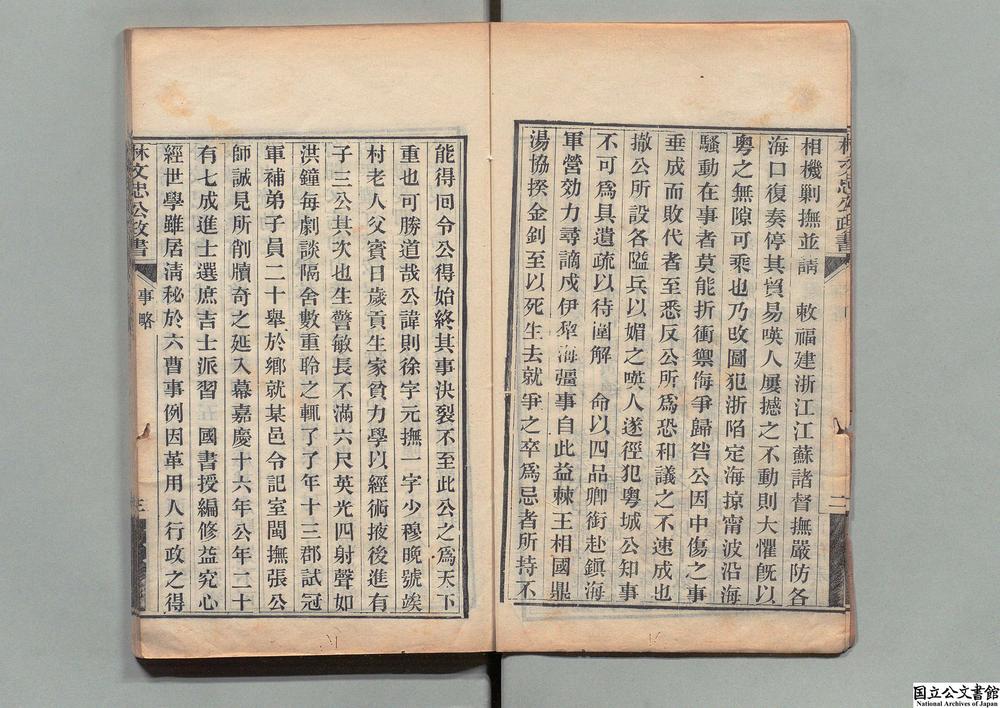 相機剿撫並請 敕福建浙江江蘇諸督撫嚴防各
海口復奏停其貿易嘆人屢撼之不動則大懼旣以
粵之無隙可乘也乃改圖犯浙陷定海掠甯波沿海
騷動在事者莫能折衝禦侮爭歸咎公因中傷之事
垂成而敗代者至悉反公所爲恐和議之不速成也
撤公所設各隘兵以媚之嘆人遂徑犯粵城公知事
不可爲具遺疏以待圍解 命以四品卿銜赴鎭海
軍營効力尋謫戍伊犂海彊事自此益棘王相國鼎
湯協揆金釗至以死生去就爭之卒爲忌者所持不
林文忠公政書
二
能得回令公得始終其事決裂不至此公之爲天下
重也可勝道哉公諱則徐字元撫一字少穆晚號竢
村老人父賓日歲貢生家貧力學以經術掖後進有
子三公其次也生警敏長不滿六尺英光四射聲如
洪鐘每劇談隔舍數重聆之輒了了年十三郡試冠
軍補弟子員二十舉於鄉就某邑令記室閩撫張公
師誠見所削牘奇之延入幕嘉慶十六年公年二十
有七成進士選庶吉士派習 國書授編修益究心
經世學雖居淸秘於六曹事例因革用人行政之得
林文忠公政書
事略
三
国立公文書館
National Archives of Japan